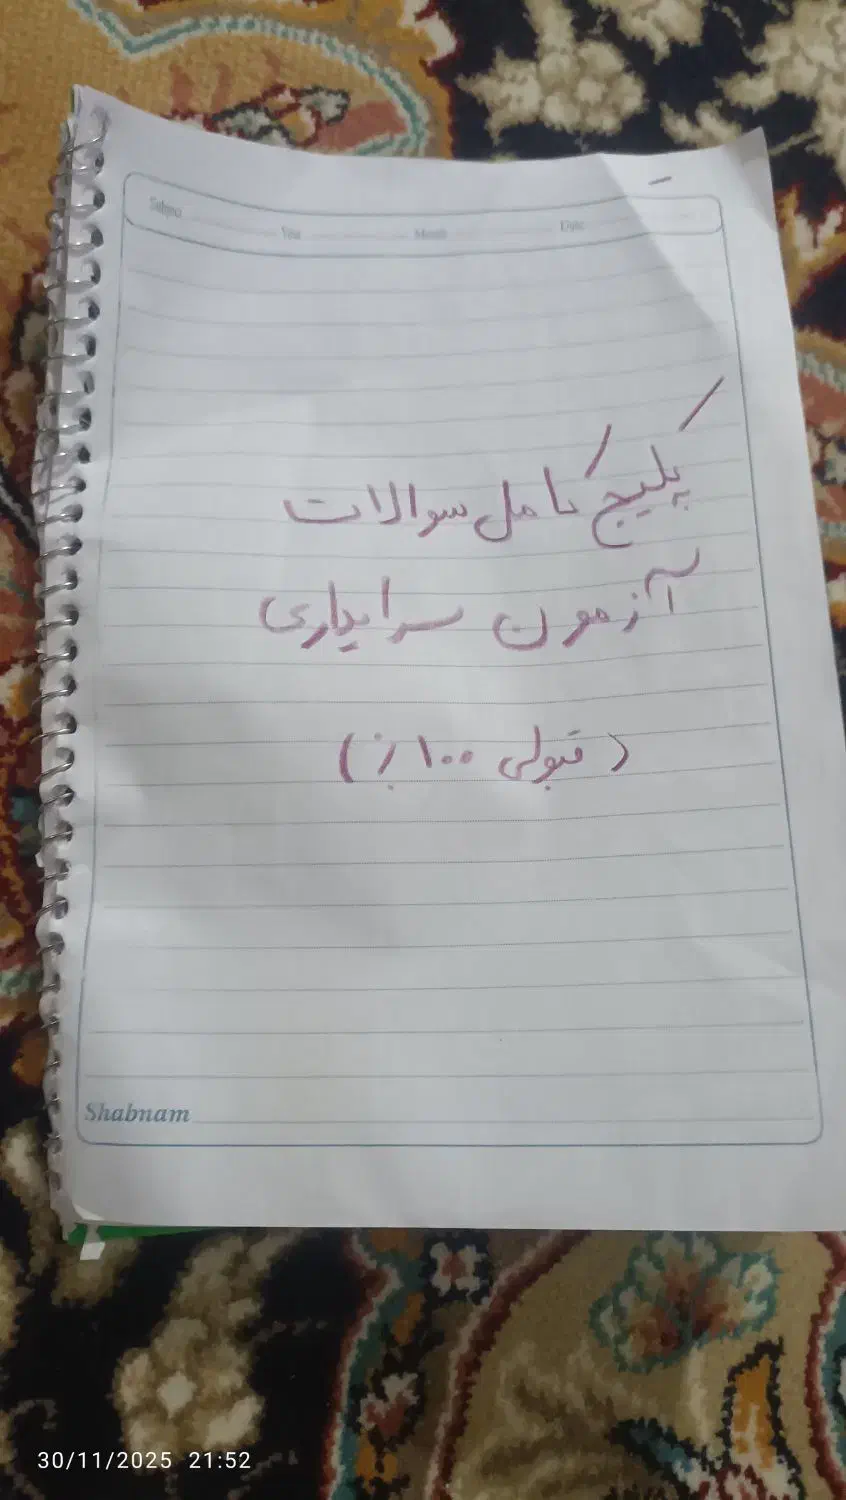 Subject Year Month Date
پکیج کامل سوالات
آزمون سرایداری
(قبولی ۱۰۰٪)
Shabnam
30/11/2025 21:52